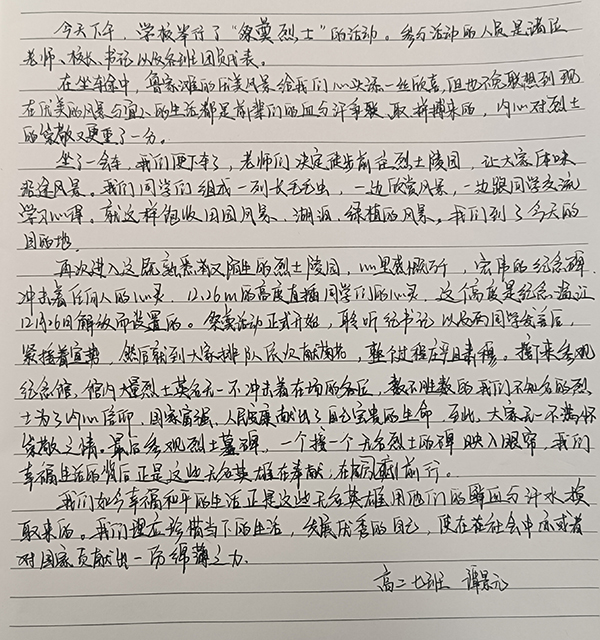 今天下午，学校举行了“祭奠烈士”的活动。参与活动的人员是诸位
老师、校长、书记以及各班团员代表。
在坐车途中，鲁家滩的优美风景给我们心头添一丝欣喜，但也不免联想到现
在优美的风景与宜人的生活都是前辈们的血与汗争取、拼搏来的，内心对烈士
的崇敬又更重了一分。
坐了一会车，我们便下车了，老师们决定徒步前往烈士陵园，让大家体味
沿途风景。我们同学们组成一列长毛毛虫，一边欣赏风景，一边跟同学交流
学习心得。就这样饱收田园风景、湖泊、绿植的风景。我们到了今天的
目的地。
再次进入这既熟悉却又陌生的烈士陵园，心里感慨万千，宏伟的纪念碑
冲击着任何人的心灵，12.26m的高度直插同学们的心灵，这个高度是纪念温江
12月26日解放而设置的。祭奠活动正式开始，聆听纪书记以及两同学发言后，
紧接着宣誓，然后就到大家排队依次献菊花，整个过程庄严且肃穆。接下来参观
纪念馆，馆内大量烈士英名无一不冲击着在场的各位，数不胜数的我们不知名的烈
士为了内心信仰，国家富强、人民安康献出了自己宝贵的生命，至此，大家无一不满怀
崇敬之情。最后参观烈士墓碑，一个接一个无名烈士的碑映入眼帘，我们
幸福生活的背后正是这些无名英雄在奉献，在负重前行。
我们如今幸福和平的生活正是这些无名英雄用他们的鲜血与汗水换
取来的。我们理应珍惜当下的生活，发展优秀的自己，使在在社会中亦或者
对国家贡献出一份绵薄之力。
高二七班 谭景元